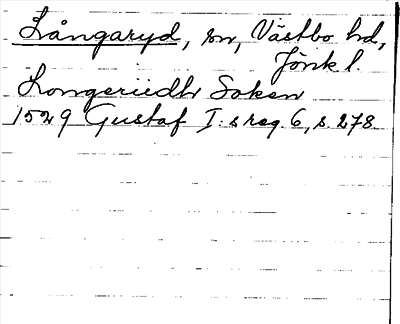 Långaryd, sn, Västbo hd,
Jönk l.
Longeriedh Soken
1529 Gustaf I:s reg. 6, s. 278